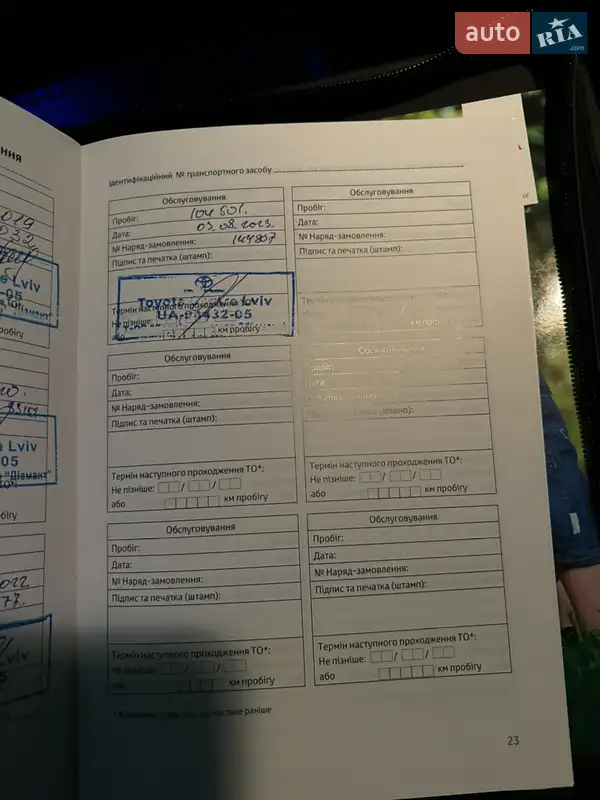 auto RIA .com
ння
Ідентифікаційний № транспортного засобу
Обслуговування
Пробіг: 104 501.
Дата: 03.08.2023.
№ Наряд-замовлення: 144807
Підпис та печатка (штамп):
Lviv
UA-93432-05
Не пізніше: / /
або км пробігу
Обслуговування
Пробіг:
Дата:
№ Наряд-замовлення:
Підпис та печатка (штамп):
/
км пробігу
Обслуговування
Пробіг:
Дата:
№ Наряд-замовлення:
Підпис та печатка (штамп):
Термін наступного проходження ТО*:
Не пізніше: / /
або км пробігу
Обслуговування
Пробіг:
Дата:
Підпис та печатка (штамп):
Термін наступного проходження ТО*:
Не пізніше: / /
або км пробігу
Обслуговування
Пробіг:
Дата:
№ Наряд-замовлення:
Підпис та печатка (штамп):
Термін наступного проходження ТО*:
Не пізніше: / /
або км пробігу
Обслуговування
Пробіг:
Дата:
№ Наряд-замовлення:
Підпис та печатка (штамп):
Термін наступного проходження ТО*:
Не пізніше: / /
або км пробігу
настане раніше
23
Lviv
-05
пробігу
Lviv
05
"Діамант"
бігу